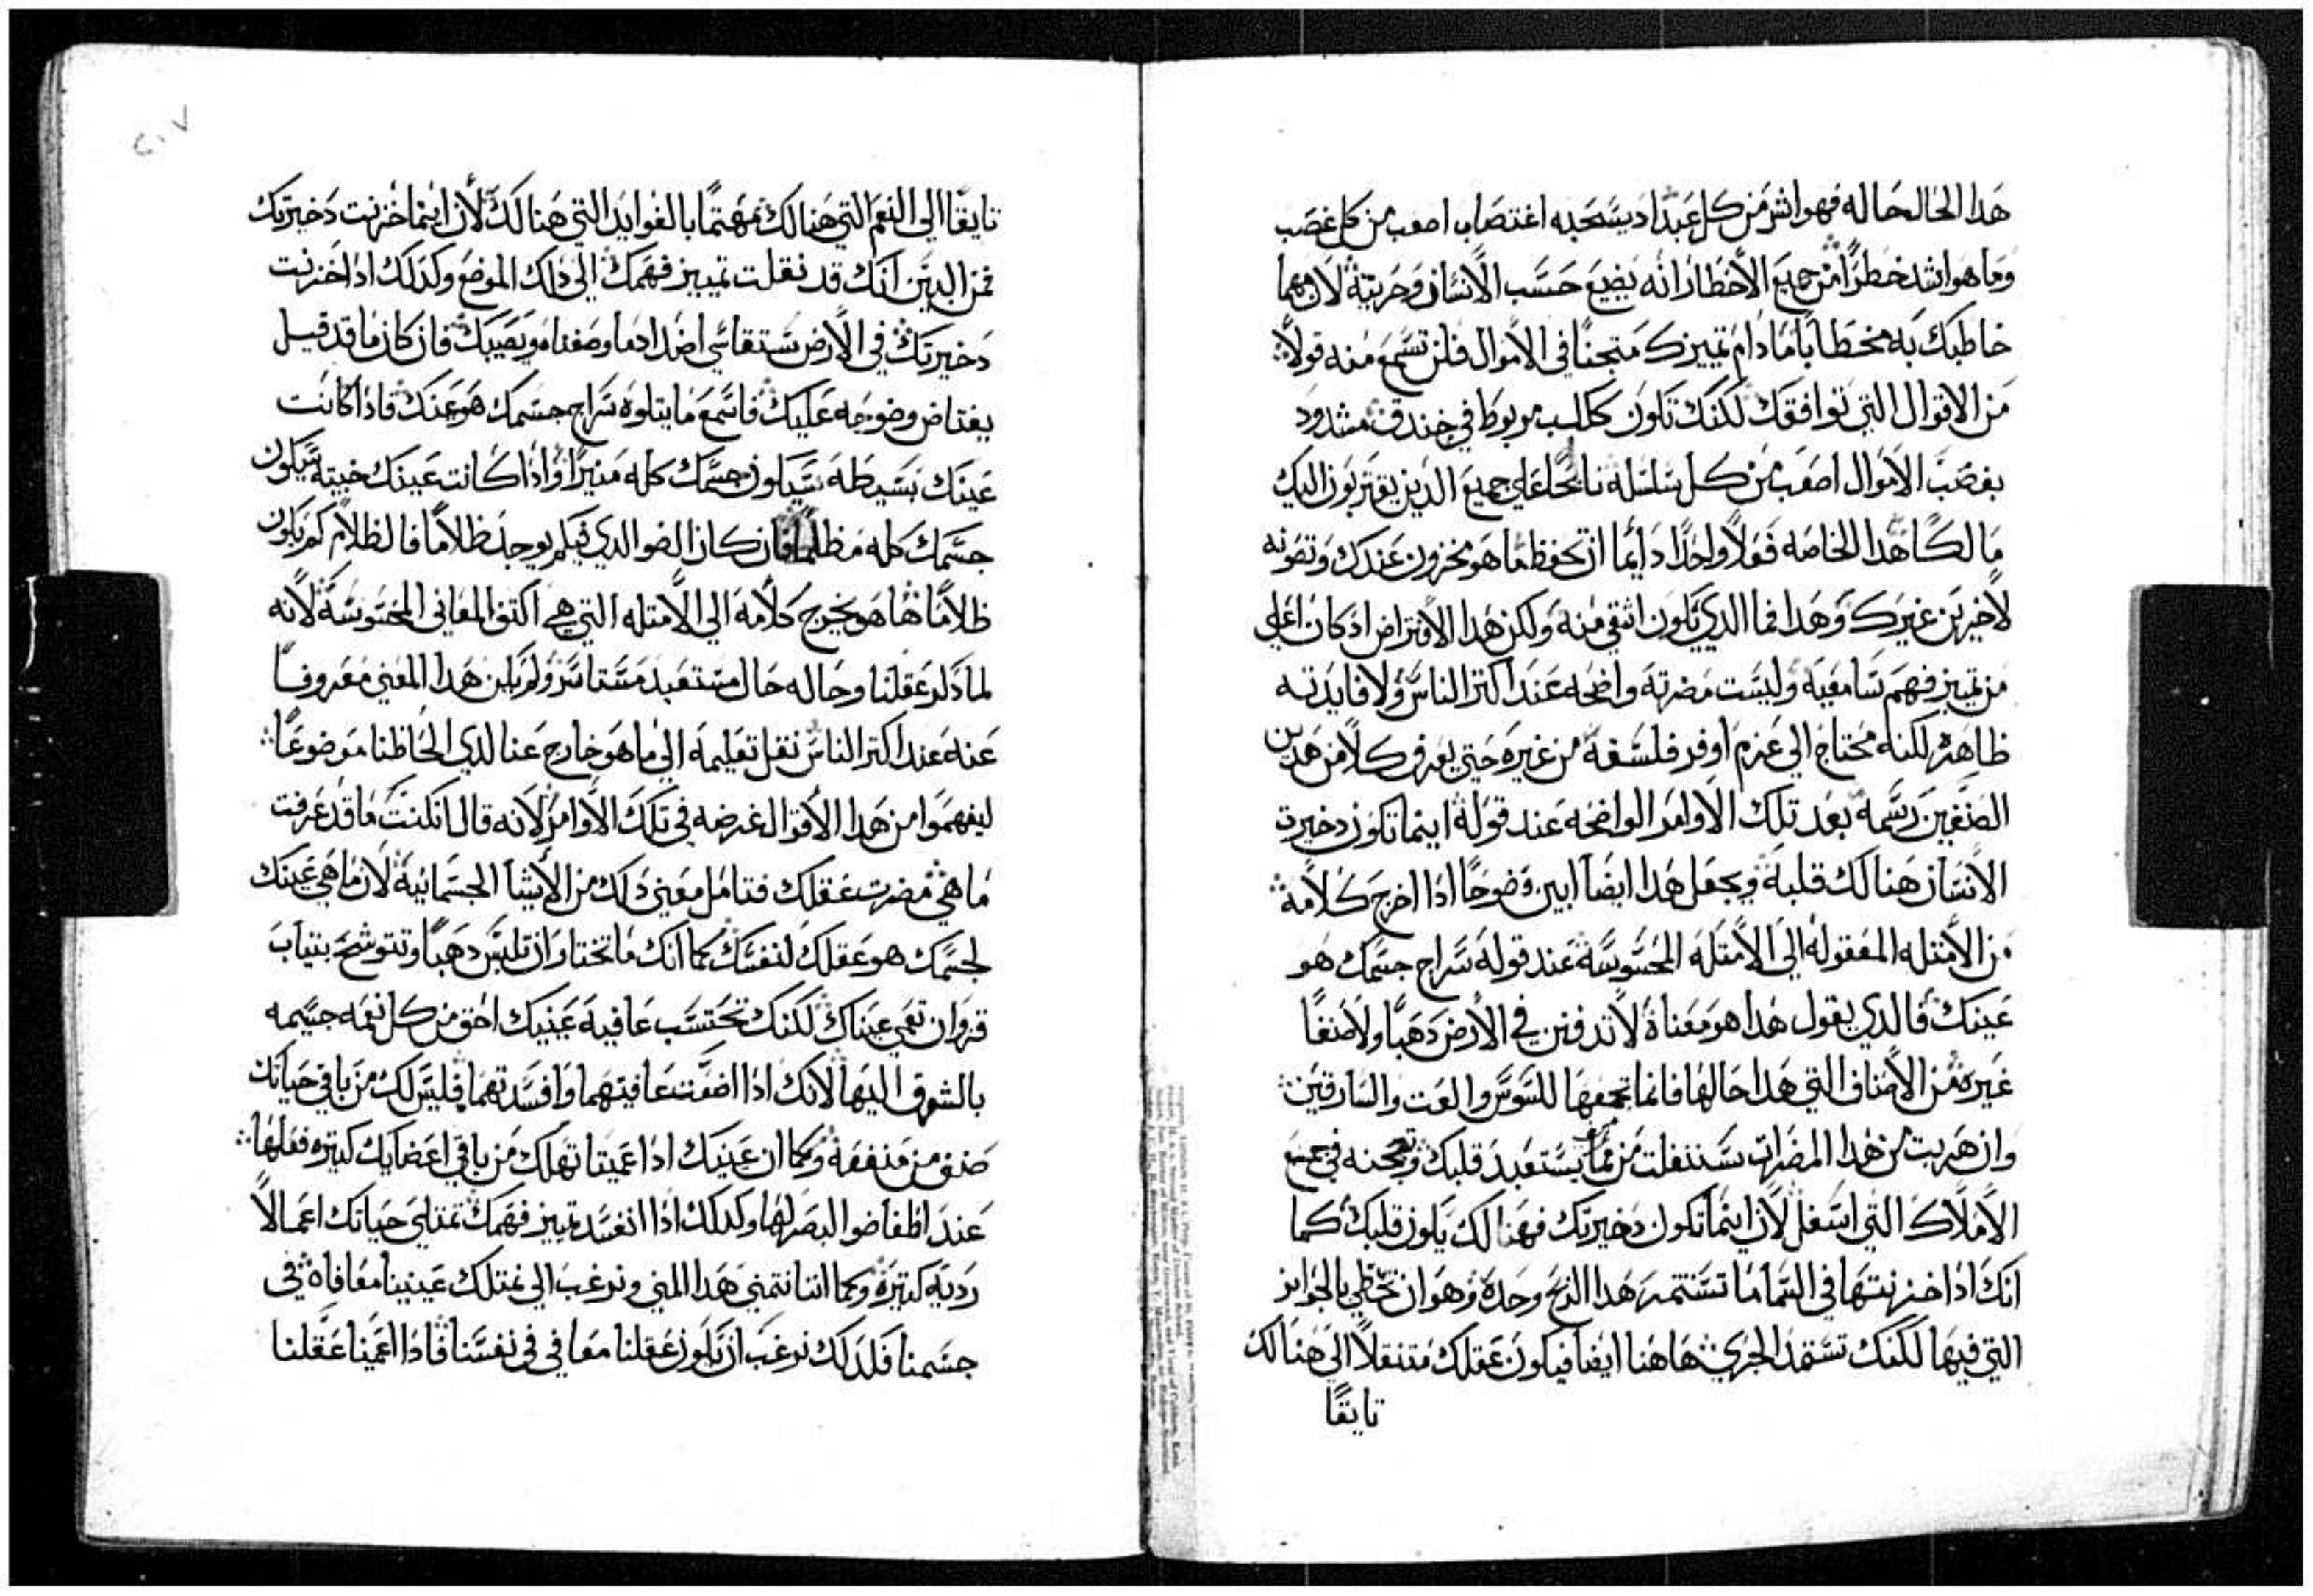 هدا الحال حاله فهو اشر من كل عبد اد يسحبه اغتصاب اصعب من كل غصب
وما هو اشد خطرًا من جميع الاخطار انه يضيع حسب الانسان وحريته لان مهما
خاطبك به مخطابًا مادام تمييزك متجنًا في الاموال فلن تسمع منه قولاً
من الاقوال التي توافقك لكنك تكون ككلب مربوط في خندق مشدود
بغصب الاموال اصعب من كل سلسله نابحًا على جميع الدين يقتربون اليك
مالكًا هدا الخاصه فعلاً واحدًا دايمًا ان تحفظ ما هو مخزون عندك وتصونه
لاخرين غيرك وهدا فما الدي يكون اشقي منه ولكن هدا الافتراض اد كان اعلي
من تمييز فهم سامعيه وليست مضرته واضحه عند اكتر الناس ولا فايدته
ظاهره لكنه محتاج الي عزم اوفر فلسفه من غيره حتي يعرف كلاً من هدين
الصنفين رسمه بعد تلك الاوامر الواضحه عند قوله اينما تكون دخيرة
الانسان هنالك قلبه ويجعل هدا ايضًا ابين وضوحًا ادا اخرج كلامه
من الامتله المعقوله الي الامتله المحسوسه عند قوله سراج جسمك هو
عينك فالدي يقول هدا هو معناه لا تدفنن في الارض دهبًا ولا صنفًا
غيره من الاصناف التي هدا حالها فانما تجمعها للسوس والعت والسارقين
وان هربت من هدا المضرات ستنفلت من مما يستعبد قلبك وتجنه في جميع
الاملاك التي اسفل لان اينما تكون دخيرتك فهنالك يكون قلبك كما
انك ادا خزنتها في السما ما تستتمر هدا الربح وحده وهو ان تحظي بالجوايز
التي فيها لكنك تستمد الجزي هاهنا ايضًا فيكون عقلك متنقلاً الي هنالك
تايقًا
٢٠٧
تايقًا الي النعم التي هنالك مهتمًا بالفوايد التي هنالك لان اينما خزنت دخيرتك
فمن البين انك قد نقلت تمييز فهمك الي دلك الموضع وكدلك ادا خزنت
دخيرتك في الارض ستقاسي اضداد ما وصفنا ويصيبك فان كان ما قد قيل
يعتاص وضوحه عليك فاسمع ما يتلوه سراج جسمك هو عينك فادا كانت
عينك بسيطه سيكون جسمك كله منيرًا وادا كانت عينك خبيته سيكون
جسمك كله مظلمًا فان كان الضو الدي فيك يوجد ظلامًا فالظلام كم يكون
ظلامًا ها هو يخرج كلامه الي الامتله التي هي اكتف المعاني المحسوسه لانه
لما دكر عقلنا وحاله حال مستعبد مستاسر ولم يكن هدا المعني معروفًا
عنه عند اكتر الناس نقل تعليمه الي ما هو خارج عنا لدي الحاظنا موضوعًا
ليفهموا من هدا الاقوال غرضه في تلك الاوامر لانه قال ان كنت ما قد عرفت
ما هي مضرت عقلك فتامل معني دلك من الاشيا الجسمانيه لان ما هي عينك
لجسمك هو عقلك لنفسك كما انك ما تختاو ان تلبس دهبًا وتتوشح بتياب
قز وان تعمي عيناك لكنك تحتسب عافية عينيك احق من كل نعمه جسيمه
بالشوق اليها لانك ادا اضعت عافيتهما وافسدتهما فليس لك من باقي حياتك
صنف من منفعه وكما ان عينيك ادا عميتا تهلك من باقي اعضايك كتيره فعلها
عند اطفا ضو البصر لها وكدلك ادا انفسد تمييز فهمك تمتلي حياتك اعمالاً
رديه كتيرة وكما اننا نتمني هدا المني ونرغب الي نمتلك عينينا معافاه في
جسمنا فلدلك نرغب ان يكون عقلنا معافي في نفسنا فادا اعمينا عقلنا